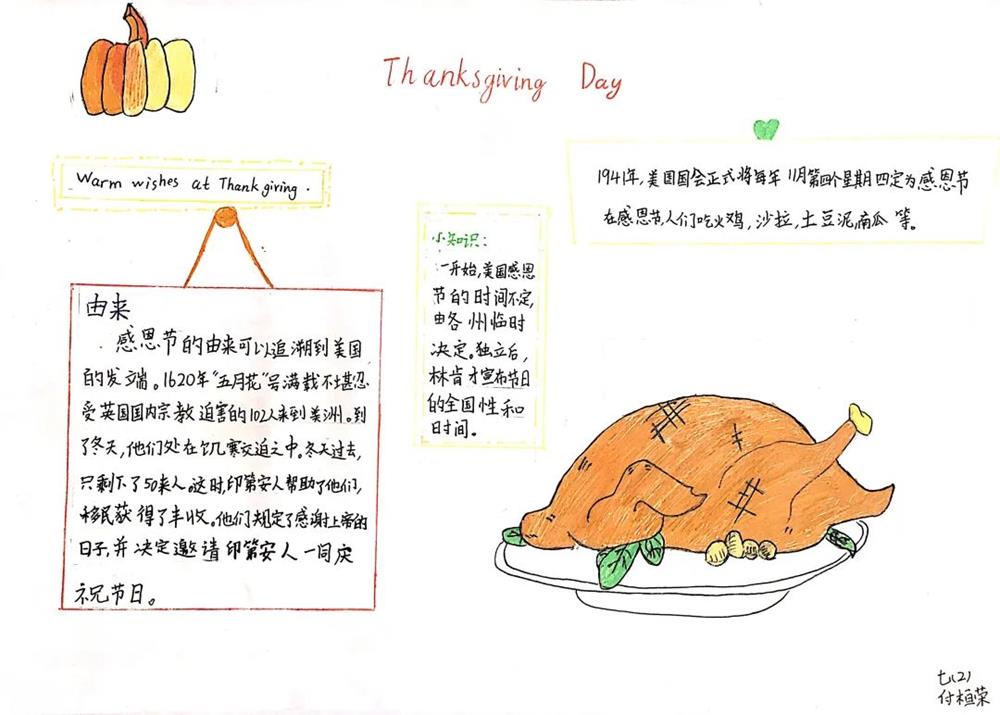 Thanksgiving Day
Warm wishes at Thankgiving.
由来
感恩节的由来可以追溯到美国
的发端。1620年"五月花"号满载不堪忍
受英国国内宗教迫害的102人来到美洲。到
了冬天，他们处在饥寒交迫之中。冬天过去，
只剩下了50来人。这时，印第安人帮助了他们，
移民获得了丰收。他们规定了感谢上帝的
日子，并决定邀请印第安人一同庆
祝节日。
小知识：
一开始，美国感恩
节的时间不定，
由各州临时
决定。独立后，
林肯才宣布节日
的全国性和
日时间。
1941年，美国国会正式将每年11月第四个星期四定为感恩节
在感恩节人们吃火鸡，沙拉，土豆泥，南瓜等。
七(2)
付桓荣